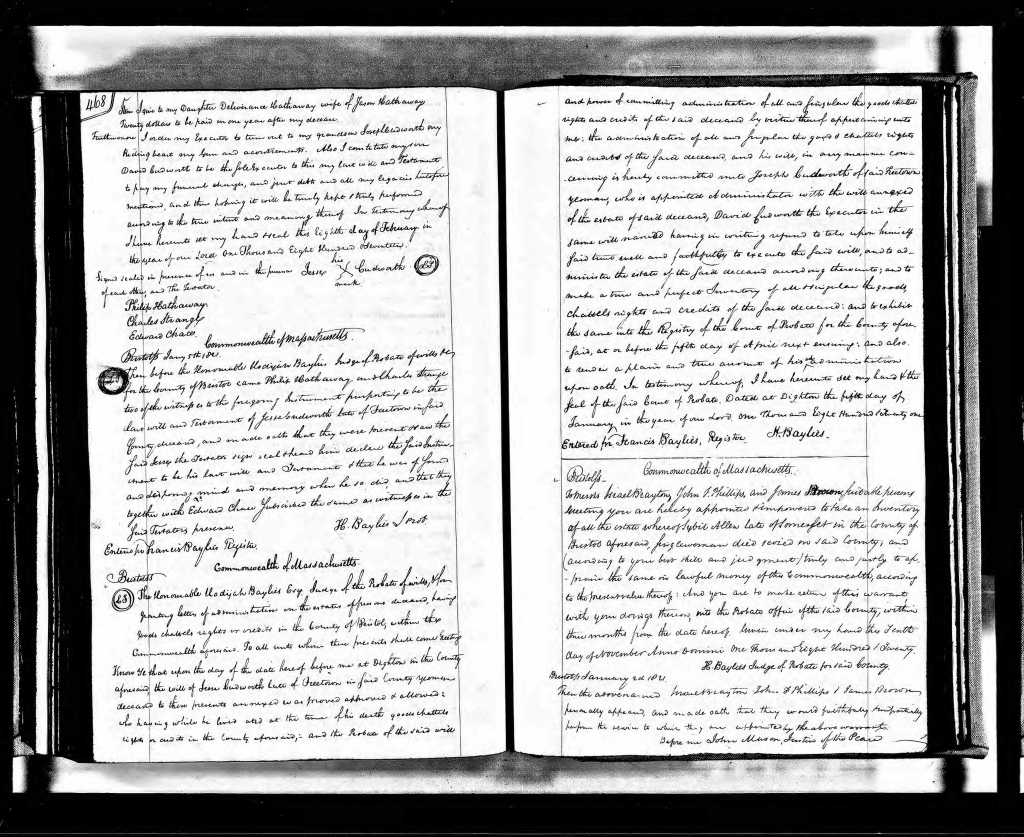 468
Item I give to my Daughter Deliverance Hathaway wife of Jason Hathaway
Twenty dollars to be paid in one year after my decease.
Furthermore I order my Executor to turn out to my grandson Joseph Cudworth my
Riding beast my Gun and accoutrements. Also I constitute my son
David Cudworth to be the sole Executor to this my last will and Testament
to pay my funeral charges, and just debts and all my legacies heretofore
mentioned, and thus hoping it will be truly kept & truly performed
according to the true intent and meaning thereof In testimony whereof
I have hereunto set my hand & seal this Eighth day of February in
the year of our Lord One Thousand Eight Hundred & Seventeen.
Signed sealed in presence of us and in the presence Jesse his X mark Cudworth LS
of each other, and The Testator.
Philip Hathaway
Charles Strange
Edward Chace
Commonwealth of Massachusetts
Bristol Ss Jany 5th 1821.
Then before the Honourable Hodijah Baylies Judge of Probate of wills &c
for the County of Bristol came Philip Hathaway and Charles Strange
two of the witnesses to the foregoing Instrument purporting to be the
last will and Testament of Jesse Cudworth late of Freetown in said
County deceased, and made oath that they were present & saw the
said Jesse the Testator sign seal & heard him declare the said Instru-
ment to be his last will and Testament & that he was of sound
and disposing mind and memory when he so did, and that they
together with Edward Chace Subscribed the same as witnesses in the
said Testators presence.
H. Baylies J Probt
Entered pr Francis Baylies Register.
Commonwealth of Massachusetts.
Bristol Ss
LS The Honourable Hodijah Baylies Esq. Judge of the Probate of wills, & for
granting letters of administration on the estates of persons deceased, having
Goods chattels rights or credits in the County of Bristol, within the
Commonwealth aforesaid. To all unto whom these presents shall come Greeting
Know Ye that upon the day of the date hereof before me at Dighton in the County
aforesaid, the will of Jesse Cudworth late of Freetown in said County yeoman
deceased to these presents annexed was proved approved & allowed:
who having while he lived and at the time of his death goods chattels
rights or credits in the County aforesaid,- and the Probate of the said will
and power of committing administration of all and singular the goods chattels
rights and credits of the said deceased by virtue thereof appertaining unto
me: the administration of all and singular the goods chattels rights
and credits of the said deceased, and his will, in any manner con-
cerning is hereby committed unto Joseph Cudworth of said Freetown
yeoman, who is appointed Administrator with the will annexed
of the estate of said deceased, David Cudworth the Executor in the
same will named having in writing refused to take upon himself
said trust well and faithfully to execute the said will, and to ad-
minister the estate of the said deceased according thereunto; and to
make a true and perfect Inventory of all & singular the goods,
chattels rights and credits of the said deceased: and to exhibit
the same into the Registry of the Court of Probate for the County afore
said, at or before the fifth day of April next ensuing; and also
to render a plain and true account of his sd administration
upon oath. In testimony whereof, I have hereunto set my hand & the
seal of the said Court of Probate, Dated at Dighton the fifth day of
January in the year of our Lord One Thousand Eight Hundred & Twenty one
Entered pr Francis Baylies, Register. H. Baylies.
Bristol Ss. Commonwealth of Massachusetts.
To Messrs Israel Brayton, John P. Phillips, and James Brown, suitable persons
Greeting you are hereby appointed & impowered to take an Inventory
of all the estate whereof Sybil Allen late of Somerset in the County of
Bristol aforesaid, Singlewoman died seized in said County; and
(according to your best skill and judgment) truly and justly to ap-
praise the same in lawful money of this Commonwealth, according
to the present value thereof: And you are to make return of this warrant
with your doings thereon, into the Probate Office of the said County, within
three months from the date hereof. Given under my hand this Tenth
day of November Anno Domini One Thousand Eight Hundred & Twenty.
H. Baylies Judge of Probate for said County.
Bristol Ss January 2d 1821.
Then the above named Israel Brayton John P. Phillips & James Brown,
personally appeared, and made oath that they would faithfully & impartially
perform the service to which they were appointed by the above warrant.
Before me John Mason, Justice of the Peace